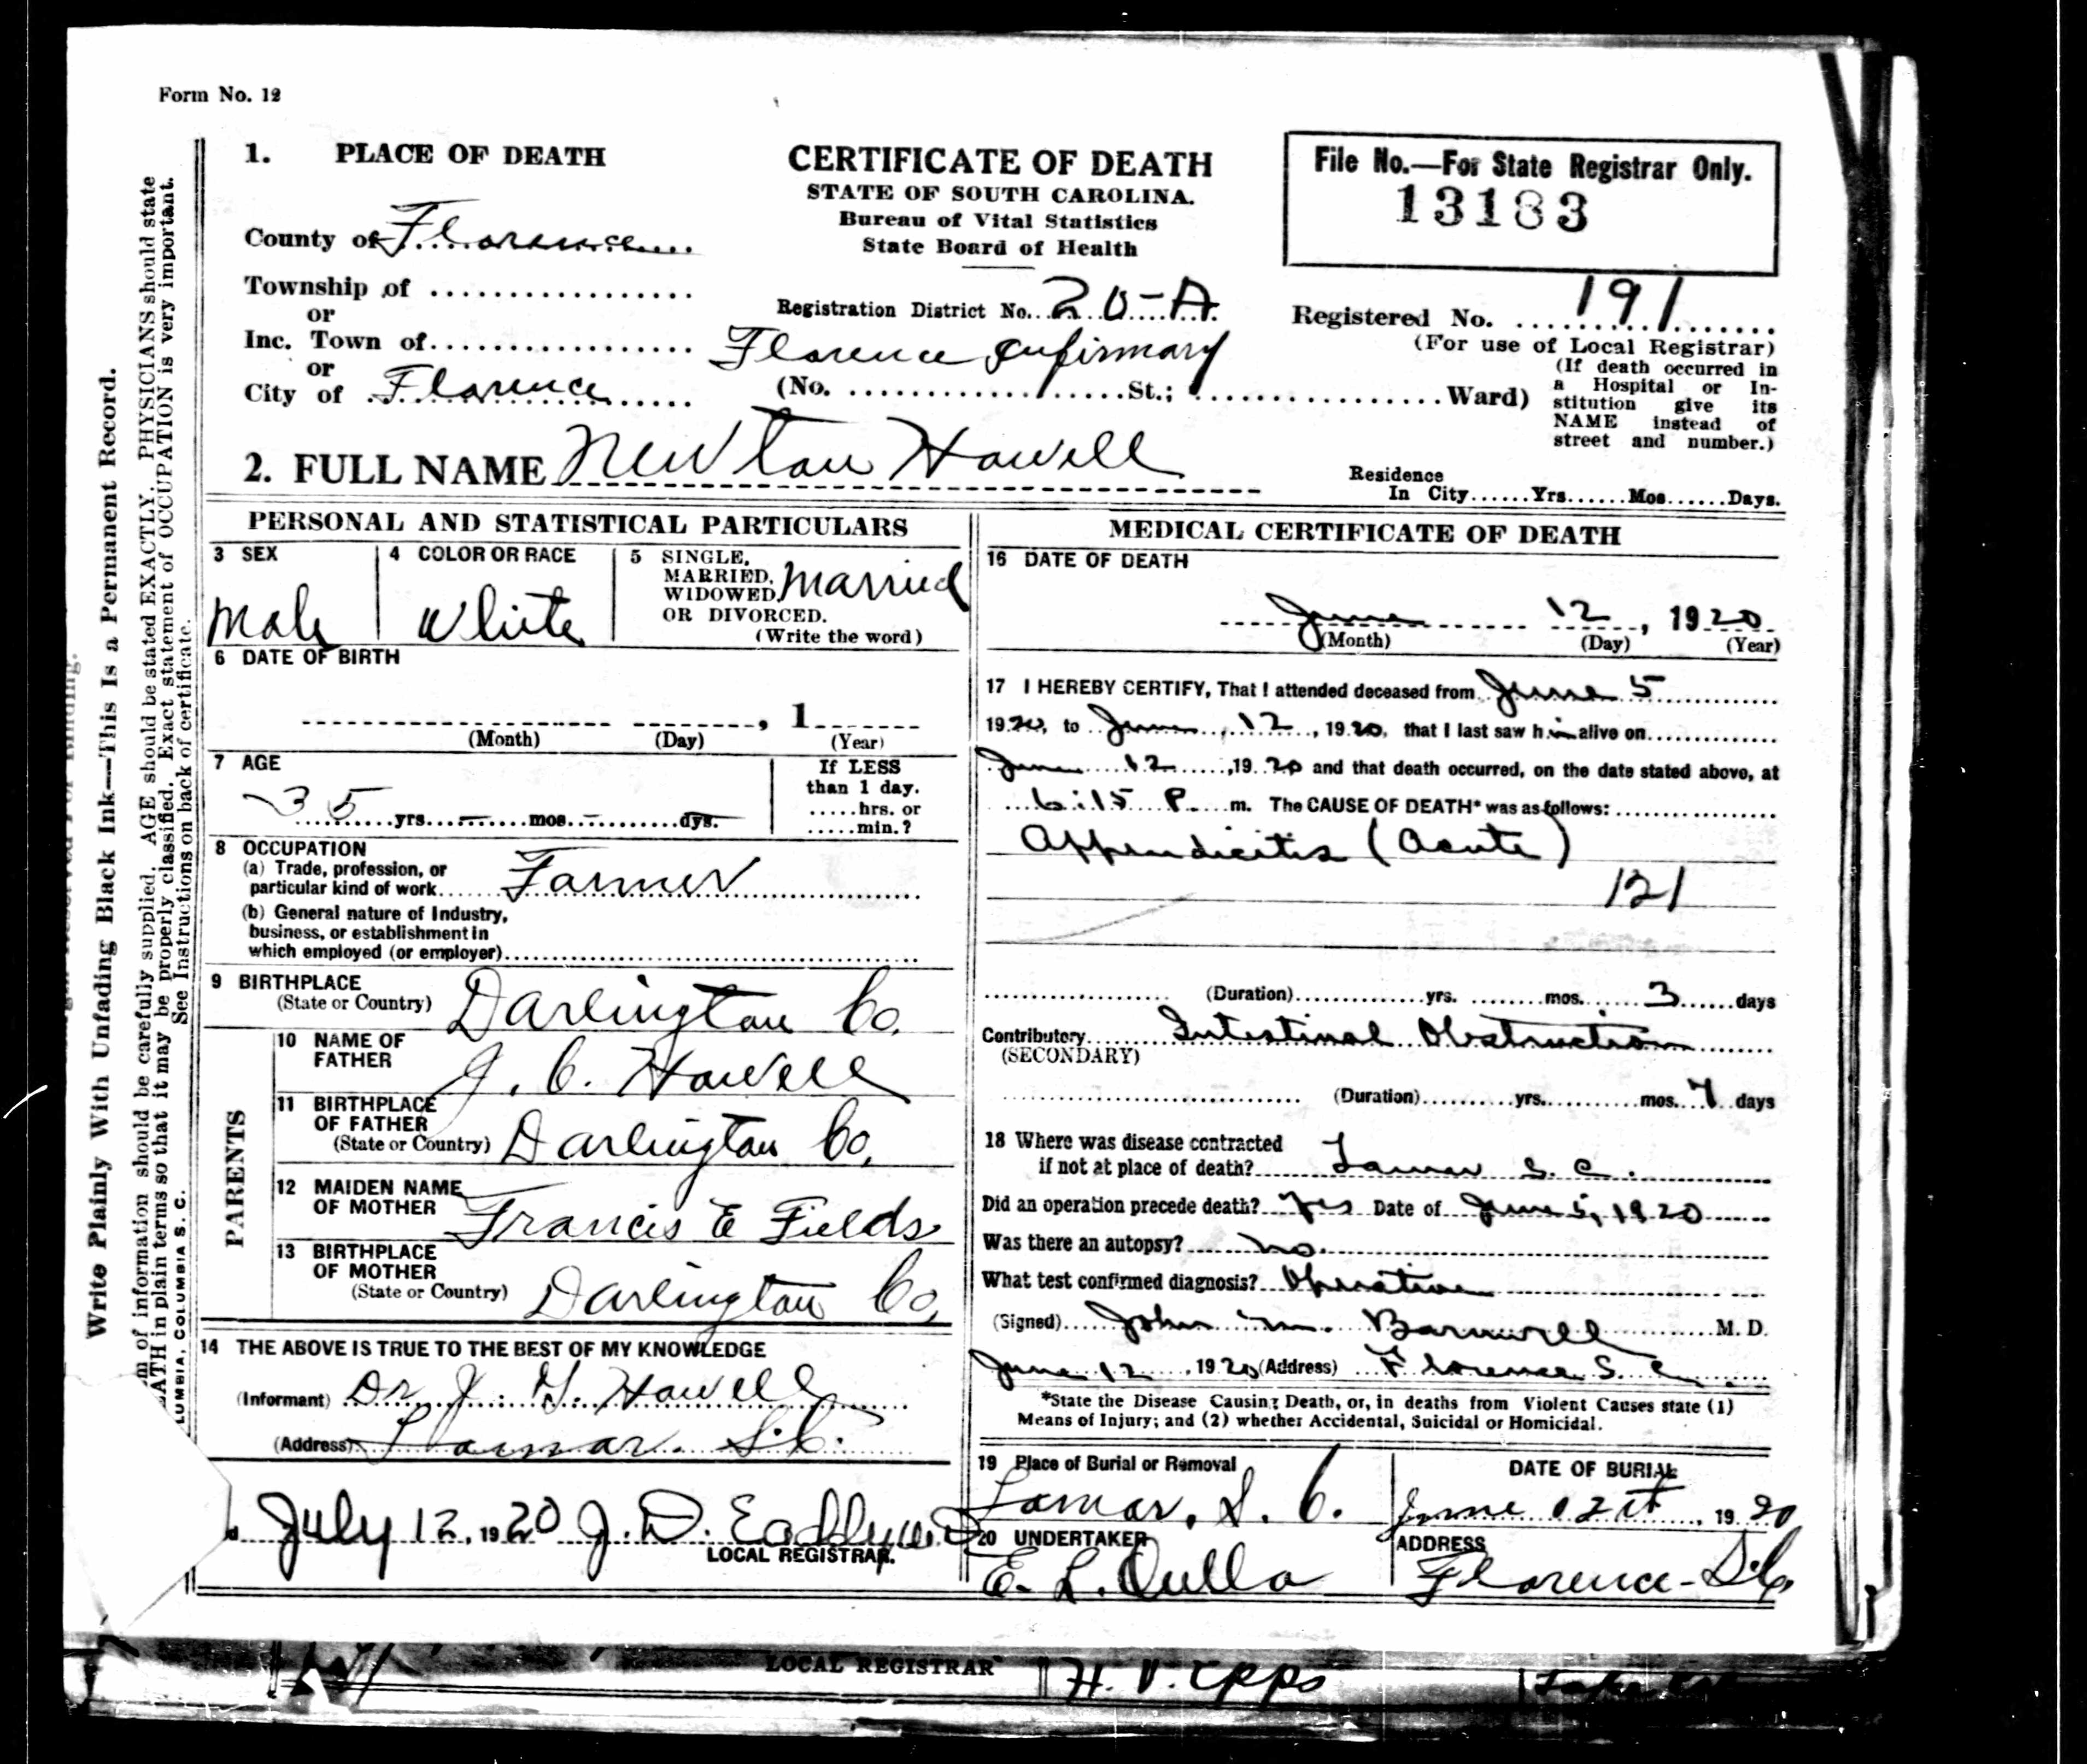 Form No. 12
1. PLACE OF DEATH
County of Florence
Township of
or
Inc. Town of
or
City of Florence
CERTIFICATE OF DEATH
STATE OF SOUTH CAROLINA.
Bureau of Vital Statistics
State Board of Health
Registration District No. 20-A
Florence Infirmary
(No. St.; Ward)
File No.—For State Registrar Only.
13183
Registered No. 191
(For use of Local Registrar)
(If death occurred in
a Hospital or In-
stitution give its
NAME instead of
street and number.)
2. FULL NAME Newton Howell
Residence
In City......Yrs......Mos......Days.
PERSONAL AND STATISTICAL PARTICULARS
3 SEX
Male
4 COLOR OR RACE
White
5 SINGLE,
MARRIED,
WIDOWED,
OR DIVORCED.
(Write the word)
Married
6 DATE OF BIRTH
, 1
(Month) (Day) (Year)
7 AGE
35 yrs. — mos. — dys.
If LESS
than 1 day.
.....hrs. or
.....min.?
8 OCCUPATION
(a) Trade, profession, or
particular kind of work Farmer
(b) General nature of Industry,
business, or establishment in
which employed (or employer)
9 BIRTHPLACE
(State or Country) Darlington Co.
PARENTS
10 NAME OF
FATHER J. C. Howell
11 BIRTHPLACE
OF FATHER
(State or Country) Darlington Co,
12 MAIDEN NAME
OF MOTHER Francis E Fields
13 BIRTHPLACE
OF MOTHER
(State or Country) Darlington Co,
14 THE ABOVE IS TRUE TO THE BEST OF MY KNOWLEDGE
(Informant) Dr J. Howell
(Address) Lamar. S.C.
d July 12, 1920 J. D. Eaddy M.D
LOCAL REGISTRAR.
MEDICAL CERTIFICATE OF DEATH
16 DATE OF DEATH
June 12, 1920
(Month) (Day) (Year)
17 I HEREBY CERTIFY, That I attended deceased from June 5
1920, to June 12, 1920, that I last saw him alive on
June 12, 1920 and that death occurred, on the date stated above, at
6:15 P. m. The CAUSE OF DEATH* was as follows:
Appendicitis (Acute)
121
(Duration) yrs. mos. 3 days
Contributory Intestinal Obstruction
(SECONDARY)
(Duration) yrs. mos. 7 days
18 Where was disease contracted
if not at place of death? Lamar S. C.
Did an operation precede death? Yes Date of June 5, 1920
Was there an autopsy? no.
What test confirmed diagnosis? Operation
(Signed) John M. Barnwell M. D.
June 12, 1920 (Address) Florence S. C.
*State the Disease Causing Death, or, in deaths from Violent Causes state (1)
Means of Injury; and (2) whether Accidental, Suicidal or Homicidal.
19 Place of Burial or Removal
Lamar, S. C.
DATE OF BURIAL
June 12th, 1920
20 UNDERTAKER
E. L.
ADDRESS
Florence - S.C.
Write Plainly With Unfading Black Ink—This Is a Permanent Record.
of information should be carefully supplied. AGE should be stated EXACTLY. PHYSICIANS should state
in plain terms so that it may be properly classified. Exact statement of OCCUPATION is very important.
See Instructions on back of certificate.
COLUMBIA S. C.
LOCAL REGISTRAR
H. V. Epps